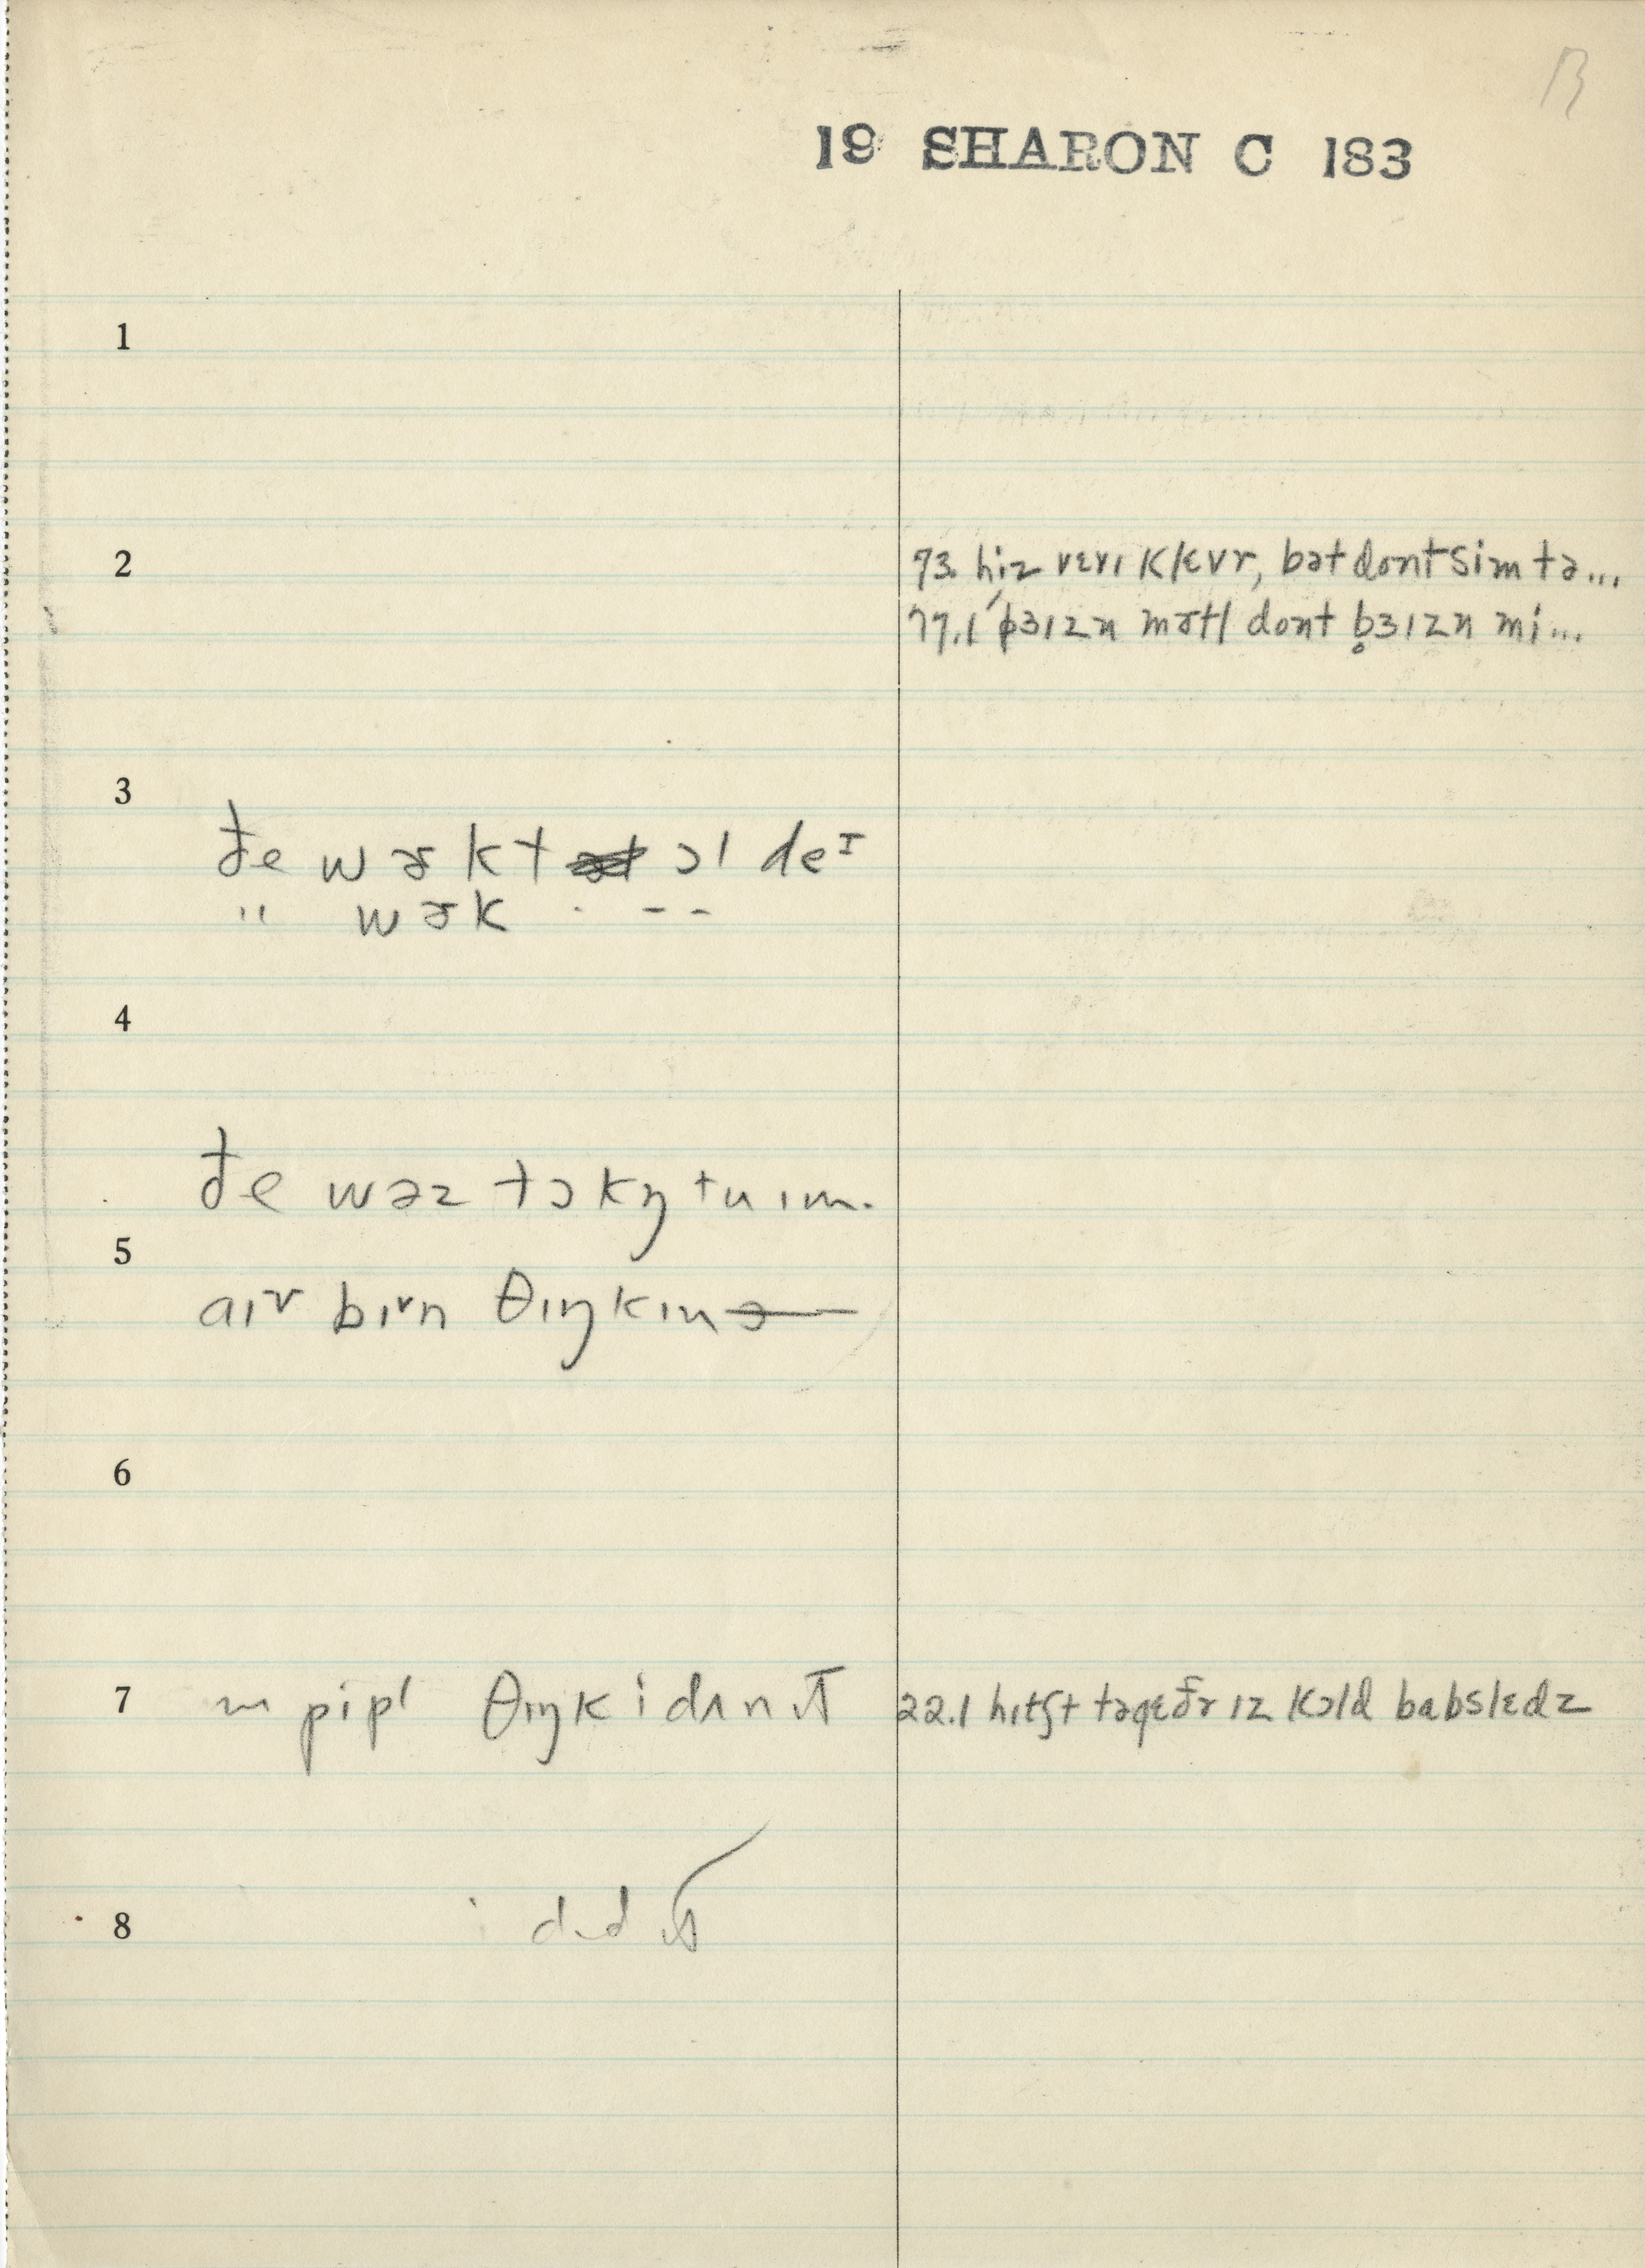 19 SHARON C 183
1
2
73. hiz vɛrɪ klɛvr, bət dont sim tə...
77.1 pɜɪzn mɚtl dont b̥ɜɪzn mi...
3
đe wɚkt ɔl deᴵ
" wɚk
4
đe wəz tɔkŋ tu ɪm.
5
aɪv bɪvn θɪŋkɪn ə
6
7
pipl θɪŋk i dʌn ɪt
22.1 hɪtʃt təgɛðr ɪz kɔld babslɛdz
8
i dɪd ɪt